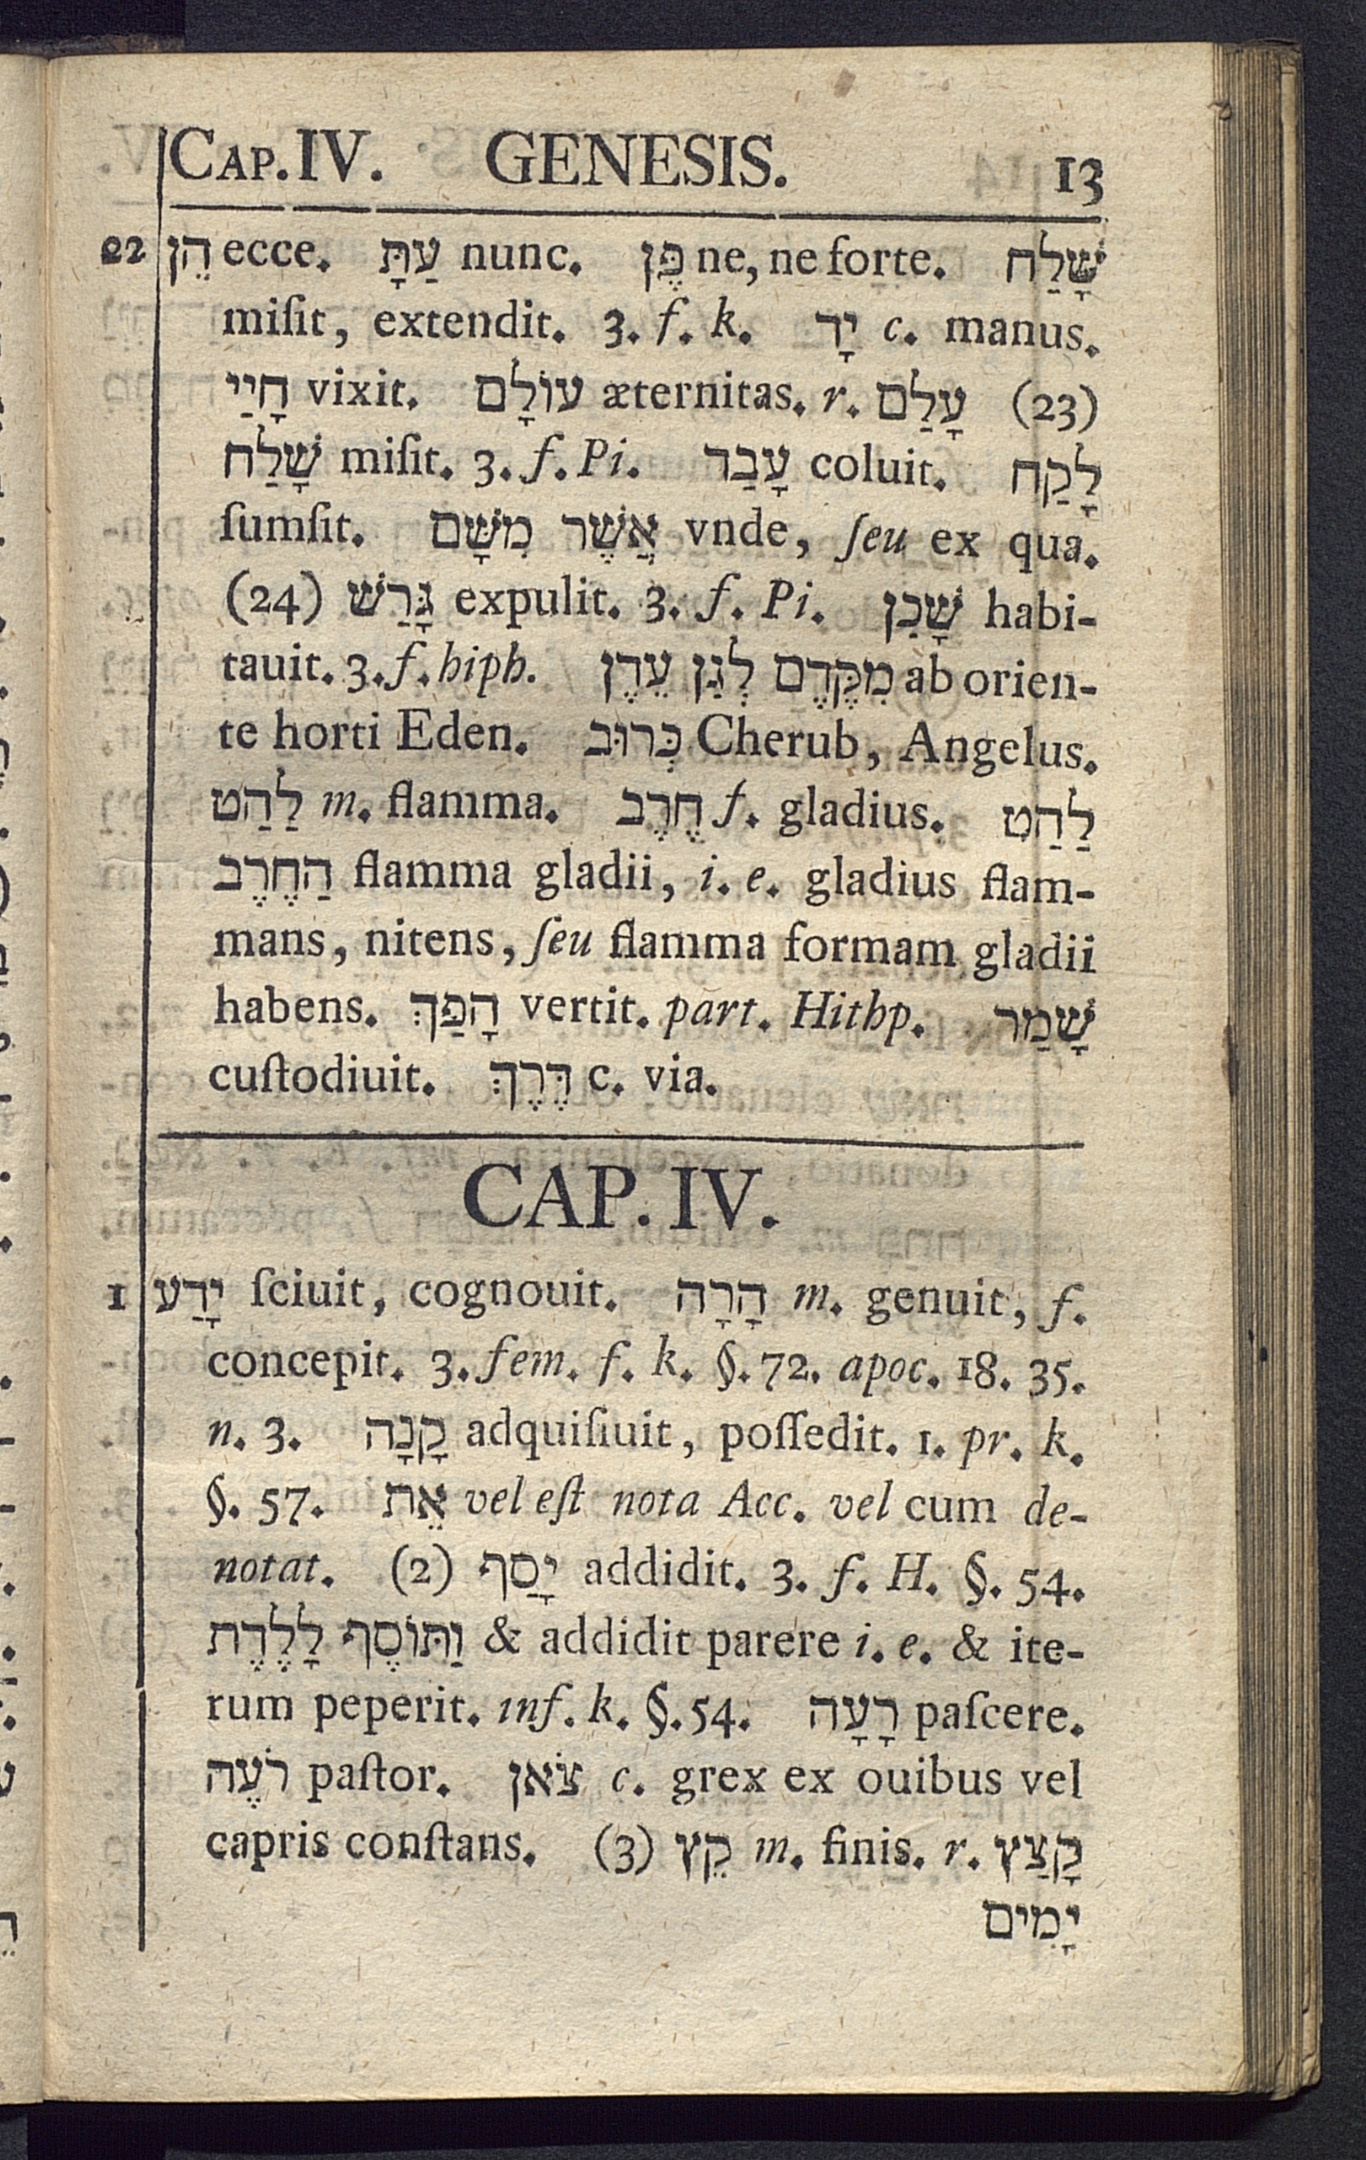 CAP. IV. GENESIS. 13
22 הֵן ecce. עַתָּ nunc. פֶּן ne, ne forte. שָׁלַח
miſit, extendit. 3. f. k. יָד c. manus.
חָיַי vixit. עוֹלָם æternitas. r. עָלַם (23)
שָׁלַח miſit. 3. f. Pi. עָבַד coluit. לָקַח
ſumſit. אֲשֶׁר מִשָּׁם vnde, ſeu ex qua.
(24) גָּרַשׁ expulit. 3. f. Pi. שָׁכַן habi-
tauit. 3. f. hiph. מִקֶּדֶם לְגַן עֵדֶן ab orien-
te horti Eden. כְּרוּב Cherub, Angelus.
לַהַט m. flamma. חֶרֶב f. gladius. לַהַט
הַחֶרֶב flamma gladii, i. e. gladius flam-
mans, nitens, ſeu flamma formam gladii
habens. הָפַךְ vertit. part. Hithp. שָׁמַר
cuſtodiuit. דֶּרֶךְ c. via.
CAP. IV.
1 יָדַע ſciuit, cognouit. הָרָה m. genuit, f.
concepit. 3. fem. f. k. §. 72. apoc. 18. 35.
n. 3. קָנָה adquiſiuit, poſſedit. 1. pr. k.
§. 57. אֵת vel eſt nota Acc. vel cum de-
notat. (2) יָסַף addidit. 3. f. H. §. 54.
וַתּוֹסֶף לָלֶדֶת & addidit parere i. e. & ite-
rum peperit. inf. k. §. 54. רָעָה paſcere.
רֹעֶה paſtor. צֹאן c. grex ex ouibus vel
capris conſtans. (3) קֵץ m. finis. r. קָצַץ
יָמִים